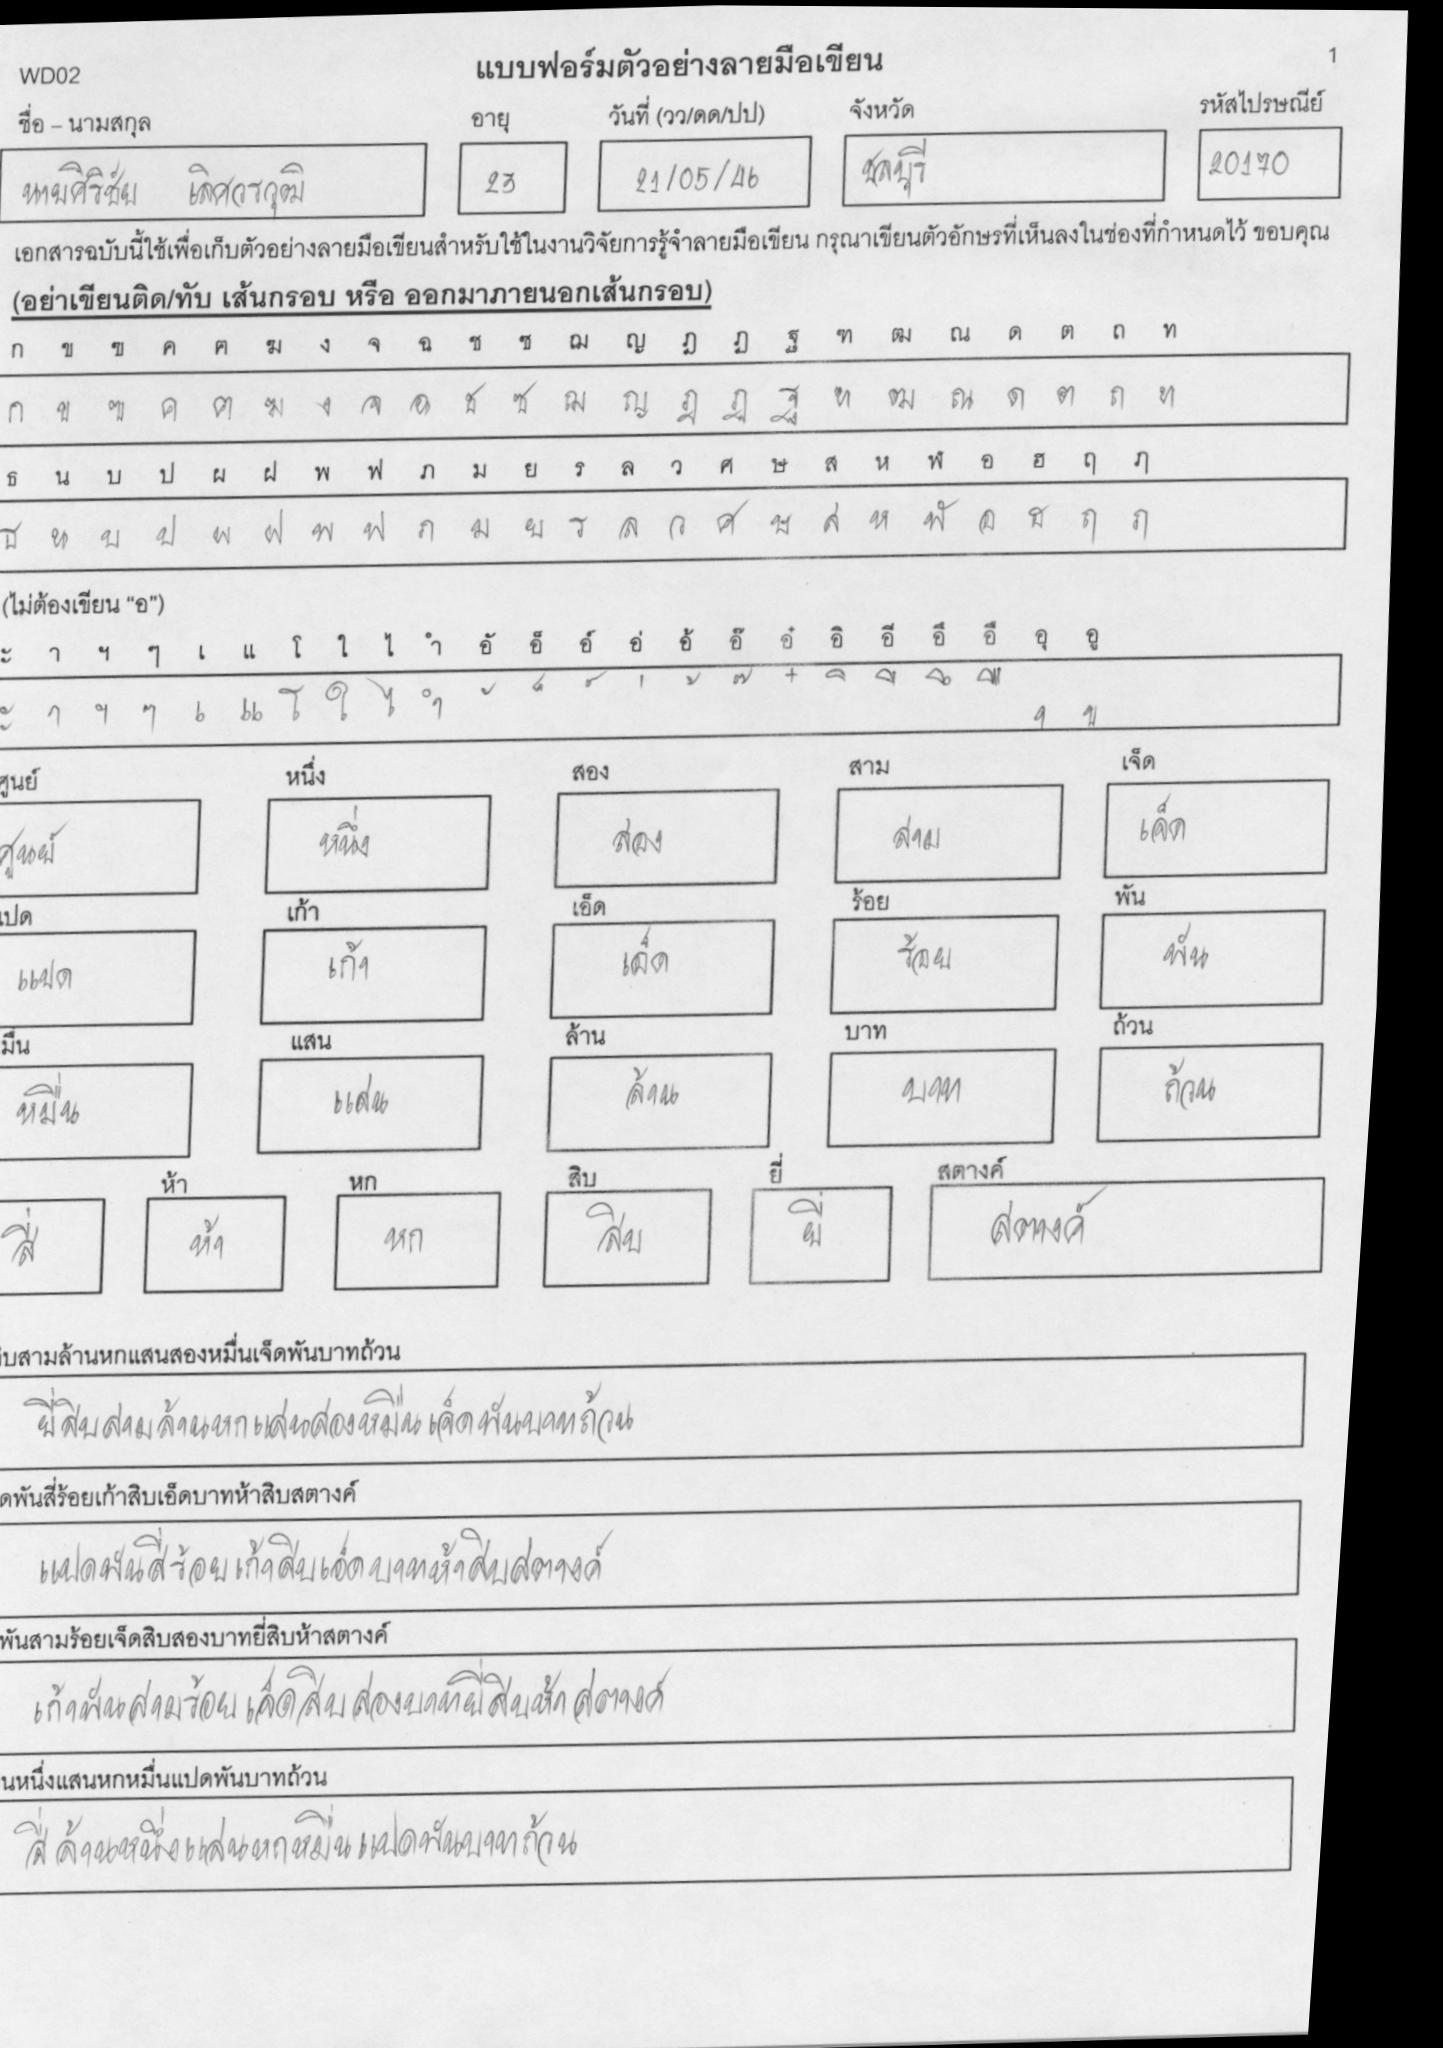 WD02 แบบฟอร์มตัวอย่างลายมือเขียน 1
ชื่อ – นามสกุล อายุ วันที่ (วว/ดด/ปป) จังหวัด รหัสไปรษณีย์
นายศิริชัย เลิศวรวุฒิ 23 21/05/46 ชลบุรี 20170
เอกสารฉบับนี้ใช้เพื่อเก็บตัวอย่างลายมือเขียนสำหรับใช้ในงานวิจัยการรู้จำลายมือเขียน กรุณาเขียนตัวอักษรที่เห็นลงในช่องที่กำหนดไว้ ขอบคุณ
(อย่าเขียนติด/ทับ เส้นกรอบ หรือ ออกมาภายนอกเส้นกรอบ)
ก ข ฃ ค ฅ ฆ ง จ ฉ ช ซ ฌ ญ ฎ ฏ ฐ ฑ ฒ ณ ด ต ถ ท
ก ข ฃ ค ฅ ฆ ง จ ฉ ช ซ ฌ ญ ฎ ฏ ฐ ฑ ฒ ณ ด ต ถ ท
ธ น บ ป ผ ฝ พ ฟ ภ ม ย ร ล ว ศ ษ ส ห ฬ อ ฮ ฤ ฦ
ธ น บ ป ผ ฝ พ ฟ ภ ม ย ร ล ว ศ ษ ส ห ฬ อ ฮ ฤ ฦ
(ไม่ต้องเขียน “อ”)
ะ า ฯ ๆ เ แ โ ใ ไ ำ อั อ็ อ์ อ่ อ้ อ๊ อ๋ อิ อี อึ อื อุ อู
ะ า ฯ ๆ เ แ โ ใ ไ ำ ั ็ ์ ่ ้ ๊ ๋ ิ ี ึ ื ุ ู
ศูนย์ หนึ่ง สอง สาม เจ็ด
ศูนย์ หนึ่ง สอง สาม เจ็ด
แปด เก้า เอ็ด ร้อย พัน
แปด เก้า เอ็ด ร้อย พัน
มื่น แสน ล้าน บาท ถ้วน
หมื่น แสน ล้าน บาท ถ้วน
ห้า หก สิบ ยี่ สตางค์
สี่ ห้า หก สิบ ยี่ สตางค์
สิบสามล้านหกแสนสองหมื่นเจ็ดพันบาทถ้วน
ยี่สิบสามล้านหกแสนสองหมื่นเจ็ดพันบาทถ้วน
ดพันสี่ร้อยเก้าสิบเอ็ดบาทห้าสิบสตางค์
แปดพันสี่ร้อยเก้าสิบเอ็ดบาทห้าสิบสตางค์
พันสามร้อยเจ็ดสิบสองบาทยี่สิบห้าสตางค์
เก้าพันสามร้อยเจ็ดสิบสองบาทยี่สิบห้าสตางค์
นหนึ่งแสนหกหมื่นแปดพันบาทถ้วน
สี่ล้านหนึ่งแสนหกหมื่นแปดพันบาทถ้วน